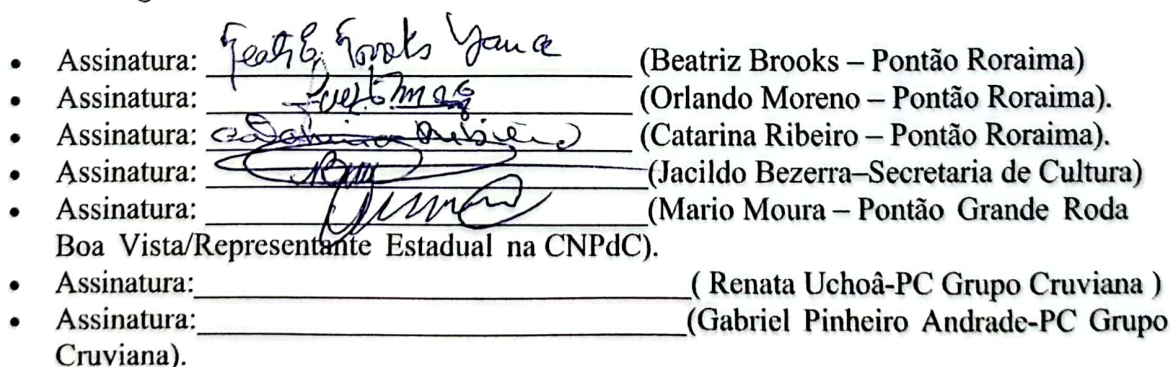 • Assinatura: ____________ (Beatriz Brooks – Pontão Roraima)
• Assinatura: ____________ (Orlando Moreno – Pontão Roraima).
• Assinatura: Catarina Ribeiro (Catarina Ribeiro – Pontão Roraima).
• Assinatura: ____________ (Jacildo Bezerra–Secretaria de Cultura)
• Assinatura: ____________ (Mario Moura – Pontão Grande Roda
Boa Vista/Representante Estadual na CNPdC).
• Assinatura:____________ ( Renata Uchoâ-PC Grupo Cruviana )
• Assinatura:____________ (Gabriel Pinheiro Andrade-PC Grupo
Cruviana).